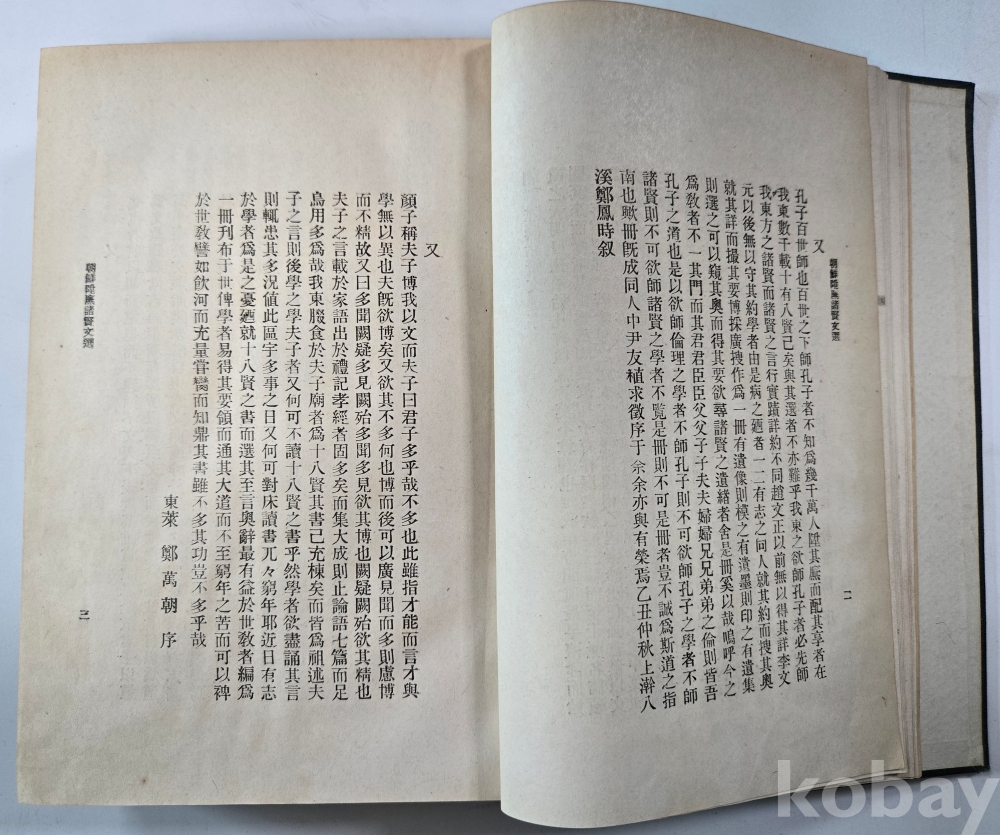 朝鮮陞廡諸賢文選
又
孔子百世師也百世之下師孔子者不知爲幾千萬人陞其廡而配其享者在
我東數千載十有八賢已矣與其選者不亦難乎我東之欲師孔子者必先師
我東方之諸賢而諸賢之言行實蹟詳約不同趙文正以前無以得其詳李文
元以後無以守其約學者由是病之廼者一二有志之同人就其約而搜其奧
就其詳而撮其要博採廣搜作爲一冊有遺像則模之有遺墨則印之有遺集
則選之可以窺其奧而得其要欲尋諸賢之遺緖者舍是冊奚以哉嗚呼今之
爲敎者不一其門而其君君臣臣父父子子夫夫婦婦兄兄弟弟之倫則皆吾
孔子之道也是以欲師倫理之學者不師孔子則不可欲師孔子之學者不師
諸賢則不可欲師諸賢之學者不覽是冊則不可是冊者豈不誠爲斯道之指
南也歟冊旣成同人中尹友植求徵序于余余亦與有榮焉乙丑仲秋上澣八
溪鄭鳳時叙
二
又
顔子稱夫子博我以文而夫子曰君子多乎哉不多也此雖指才能而言才與
學無以異也夫旣欲博矣又欲其不多何也博而後可以廣見聞而多則慮博
而不精故又曰多聞闕疑多見闕殆多聞多見欲其博也闕疑闕殆欲其精也
夫子之言載於家語出於禮記孝經者固多矣而集大成則止論語七篇而足
烏用多爲哉我東腏食於夫子廟者爲十八賢其書已充棟矣而皆爲祖述夫
子之言則後學之學夫子者又何可不讀十八賢之書乎然學者欲盡誦其言
則輒患其多況値此區宇多事之日又何可對床讀書兀々窮年耶近日有志
於學者爲是之憂廼就十八賢之書而選其至言奧辭最有益於世敎者編爲
一冊刋布于世俾學者易得其要領而通其大道而不至窮年之苦而可以裨
於世敎譬如飮河而充量嘗臠而知鼎其書雖不多其功豈不多乎哉
東萊 鄭萬朝 序
朝鮮陞廡諸賢文選
三
kobay